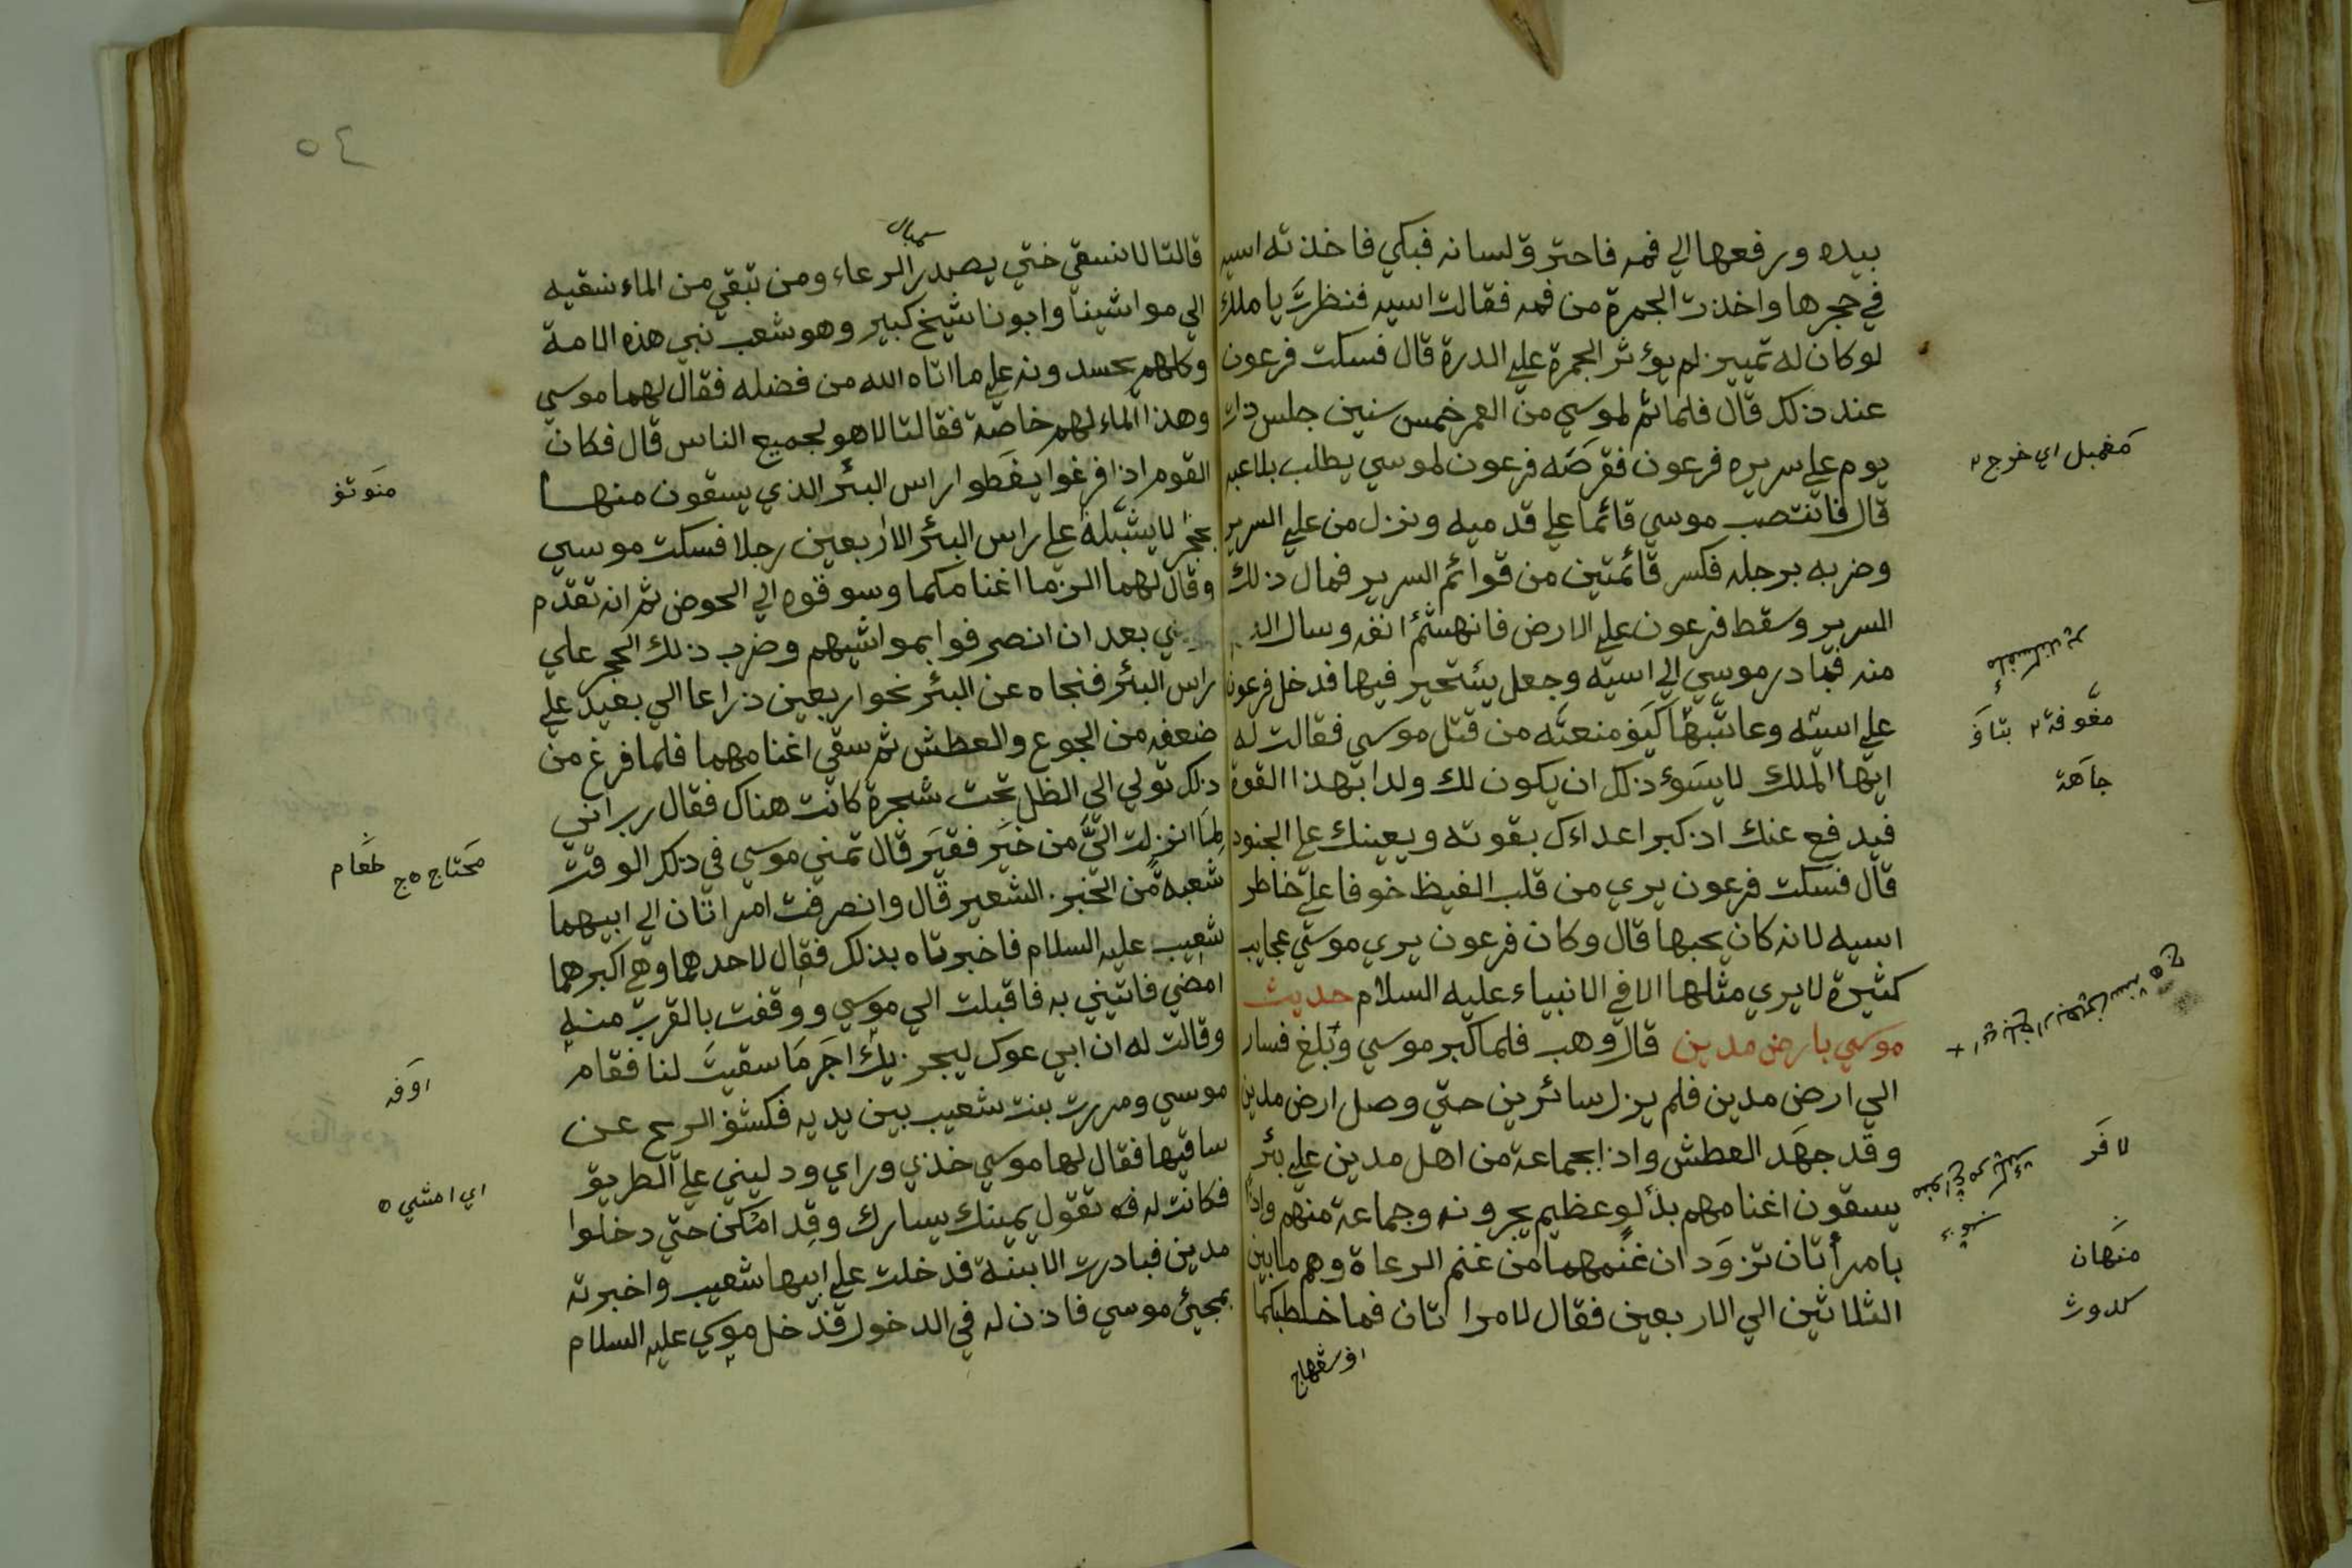 بيده ورفعها الي فمه فاحترق لسانه فبكي فاخذته اسيه
في حجرها واخذت الجمرة من فمه فقالت اسيه فنظرت يا ملك
لو كان له تمييز لم يؤثر الجمرة علي الدرة قال فسكت فرعون
عند ذلك قال فلما تم لموسي من العمر خمس سنين جلس ذات
يوم علي سريره فرعون فقرصه فرعون لموسي يطلب بلاعبه
قال فانتصب موسي قائما علي قدميه ونزل من علي السرير
وضربه برجله فكسر قائمتين من قوائم السرير فمال ذلك
السرير وسقط فرعون علي الارض فانهشم انفه وسال
منه فبادر موسي الي اسيه وجعل يستحير فيها فدخل فرعون
علي اسيه وعاتبها كيف منعته من قتل موسي فقالت له
ايها الملك لا يسوء ذلك ان يكون لك ولدا بهذا القوة
فيدفع عنك اذ كبر اعداءك بقوته ويعينك علي الجنود
قال فسكت فرعون يري من قلب الغيظ خوفا علي خاطر
اسيه لانه كان يحبها قال وكان فرعون يري موسي عجايب
كثيرة لا يري مثلها الا في الانبياء عليه السلام حديث
موسي بارض مدين قال وهب فلما كبر موسي وبلغ فسار
الي ارض مدين فلم يزل سائرين حتي وصل ارض مدين
وقد جهد العطش واذا بجماعة من اهل مدين علي بئر
يسقون اغنامهم بدلو عظيم يجرونه وجماعة منهم واذا
بامرأتان تزودان غنمهما من غنم الرعاة وهم ما بين
الثلاثين الي الاربعين فقال لامراتان فما خطبكما
مغمبل اي خرج
مغوفة بتاو
جاهة
لافر
منهان
كدوث
٥٤
قالتا لا نسقي ختي يصدر الرعاء ومن تبقي من الماء نسقيه
الي مواشينا وابونا شيخ كبير وهو شعيب نبي هذه الامة
وكلهم يحسدونه علي ما اتاه الله من فضله فقال لهما موسي
وهذا الماء لهم خاصة فقالتا لا هو لجميع الناس قال فكان
القوم اذا فرغوا يغطوا راس البئر الذي يسقون منها
بحجر لا يشيله علي راس البئر الا اربعين رجلا فسكت موسي
وقال لهما الزما اغنامكما وسوقوه الي الحوض ثم انه تقدم
بعد ان انصرفوا بمواشيهم وضرب ذلك الحجر علي
راس البئر فنجاه عن البئر نحو اربعين ذراعا الي بعيد علي
ضعفه من الجوع والعطش ثم سقي اغنامهما فلما فرغ من
ذلك تولي الي الظل تحت شجرة كانت هناك فقال رب اني
لما انزلت الي من خير فقير قال تمني موسي في ذلك الوقت
شعبة من الخبز الشعير قال وانصرفت امراتان الي ابيهما
شعيب عليه السلام فاخبرتاه بذلك فقال لاحدهما وهي اكبرهما
امضي فاتيني به فاقبلت الي موسي ووقفت بالقرب منه
وقالت له ان ابي عوك ليجزيك اجر ما سقيت لنا فقام
موسي ومررت بنت شعيب بين يديه فكشف الريح عن
ساقيها فقال لها موسي خذي وراي ودليني علي الطريق
فكانت له فه تقول يمينك يسارك وقد امكن حتي دخلوا
مدين فبادرت الابنة فدخلت علي ابيها شعيب واخبرته
بمجيئ موسي فاذن له في الدخول فدخل موسي عليه السلام
منوتف
محتاج ج طعام
اوفه
اي امشي ٥